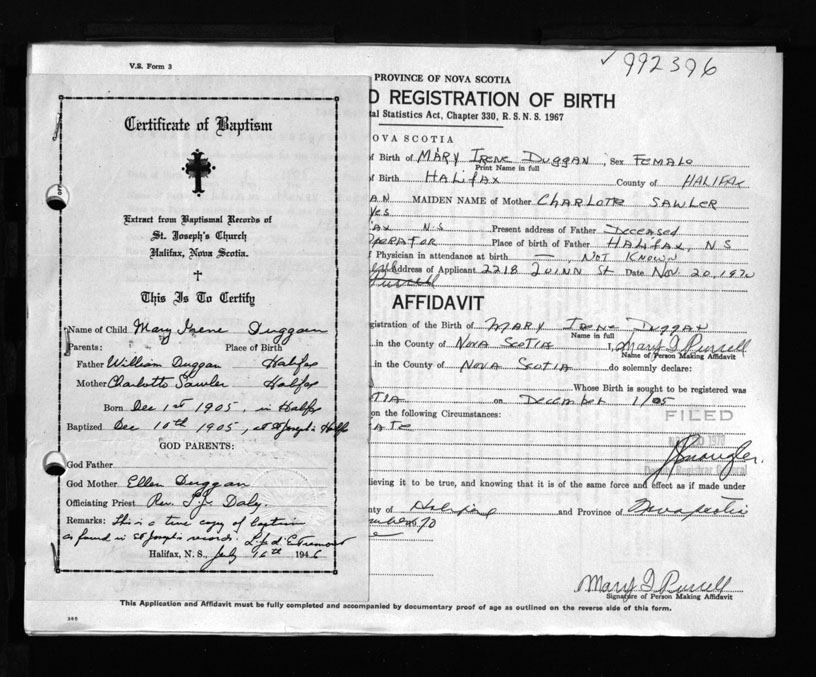 V.S. Form 3
✓992396
Certificate of Baptism
Extract from Baptismal Records of
St. Joseph's Church
Halifax, Nova Scotia.
This Is To Certify
Name of Child Mary Irene Duggan
Parents: Place of Birth
Father William Duggan Halifax
Mother Charlotte Sawler Halifax
Born Dec 1st 1905, in Halifax
Baptized Dec 10th 1905, at St Joseph's Halifx
GOD PARENTS:
God Father
God Mother Ellen Duggan
Officiating Priest Rev. Daly.
Remarks: This is a true copy of baptism
as found in St Joseph's records.
Halifax, N. S., July 1946
PROVINCE OF NOVA SCOTIA
D REGISTRATION OF BIRTH
tal Statistics Act, Chapter 330, R. S. N. S. 1967
NOVA SCOTIA
of Birth of MARY IRENE DUGGAN, Sex FEMALE
Print Name in full
of Birth HALIFAX County of HALIFAX
AN MAIDEN NAME of Mother CHARLOTTE SAWLER
Yes
AX N S Present address of Father DECEASED
OPERATOR Place of birth of Father HALIFAX, N S
f Physician in attendance at birth —, NOT KNOWN
Address of Applicant 2218 QUINN St Date Nov. 20, 1970
Purcell
AFFIDAVIT
gistration of the Birth of MARY IRENE DUGGAN
Name in full
in the County of NOVA SCOTIA I, Mary I Purcell
Name of Person Making Affidavit
in the County of NOVA SCOTIA do solemnly declare:
Whose Birth is sought to be registered was
TIA on DECEMBER 1/05
on the following Circumstances:
ATE
FILED
1970
Deputy Registrar General
lieving it to be true, and knowing that it is of the same force and effect as if made under
ty of Halifax and Province of Nova Scotia
Mary I Purcell
Signature of Person Making Affidavit
This Application and Affidavit must be fully completed and accompanied by documentary proof of age as outlined on the reverse side of this form.